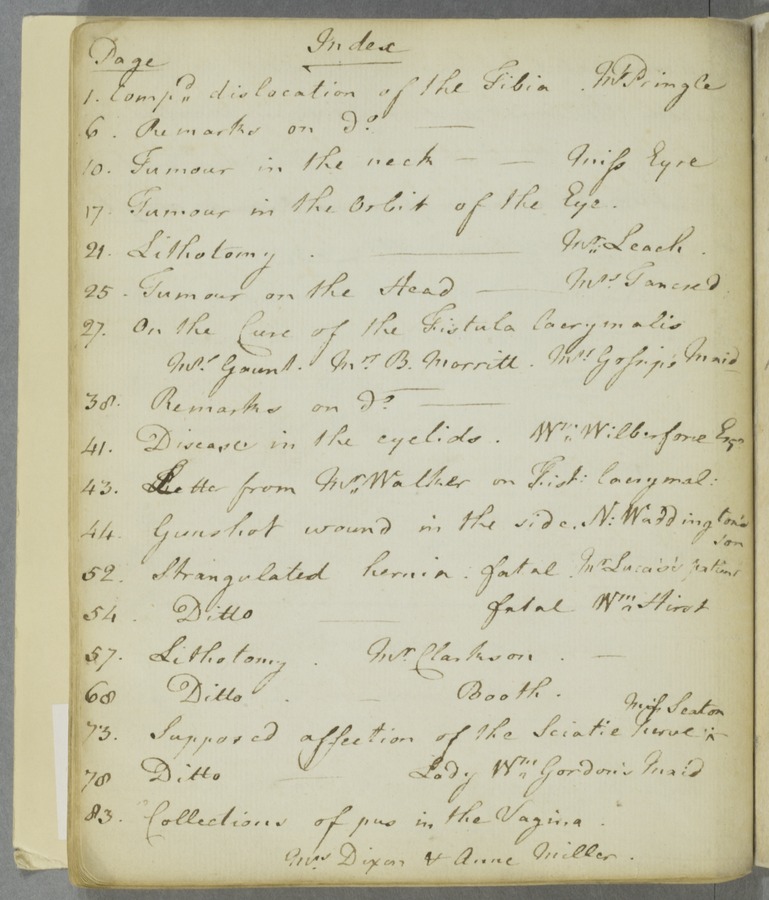 Index
Page
1. Comp.d dislocation of the Tibia. Mr Pringle
6. Remarks on Do. —
10. Tumour in the neck — — Miss Eyre
17. Tumour in the Orbit of the Eye.
21. Lithotomy. — Mr. Leach.
25. Tumour on the Head — Mrs Tancred
27. On the Cure of the Fistula lacrymalis
Mrs Gaunt. Mr B. Morritt. Mrs Gossip's Maid
38. Remarks on Do. —
41. Disease in the eyelids. Wm. Wilberforce Esqr
43. Letter from Mr. Walker on Fist: lacrymal:
44. Gunshot wound in the side. N: Waddington's
son
52. Strangulated hernia. fatal. Mr Lucas's patient
54. Ditto — fatal Wm Hirst
57. Lithotomy. Mr Clarkson. —
68 Ditto. — Booth.
Miss Seaton
73. Supposed affection of the Sciatic nerve
78 Ditto — Lady Wm Gordon's Maid
83. Collections of pus in the Vagina.
Mrs Dixon & Anne Miller.